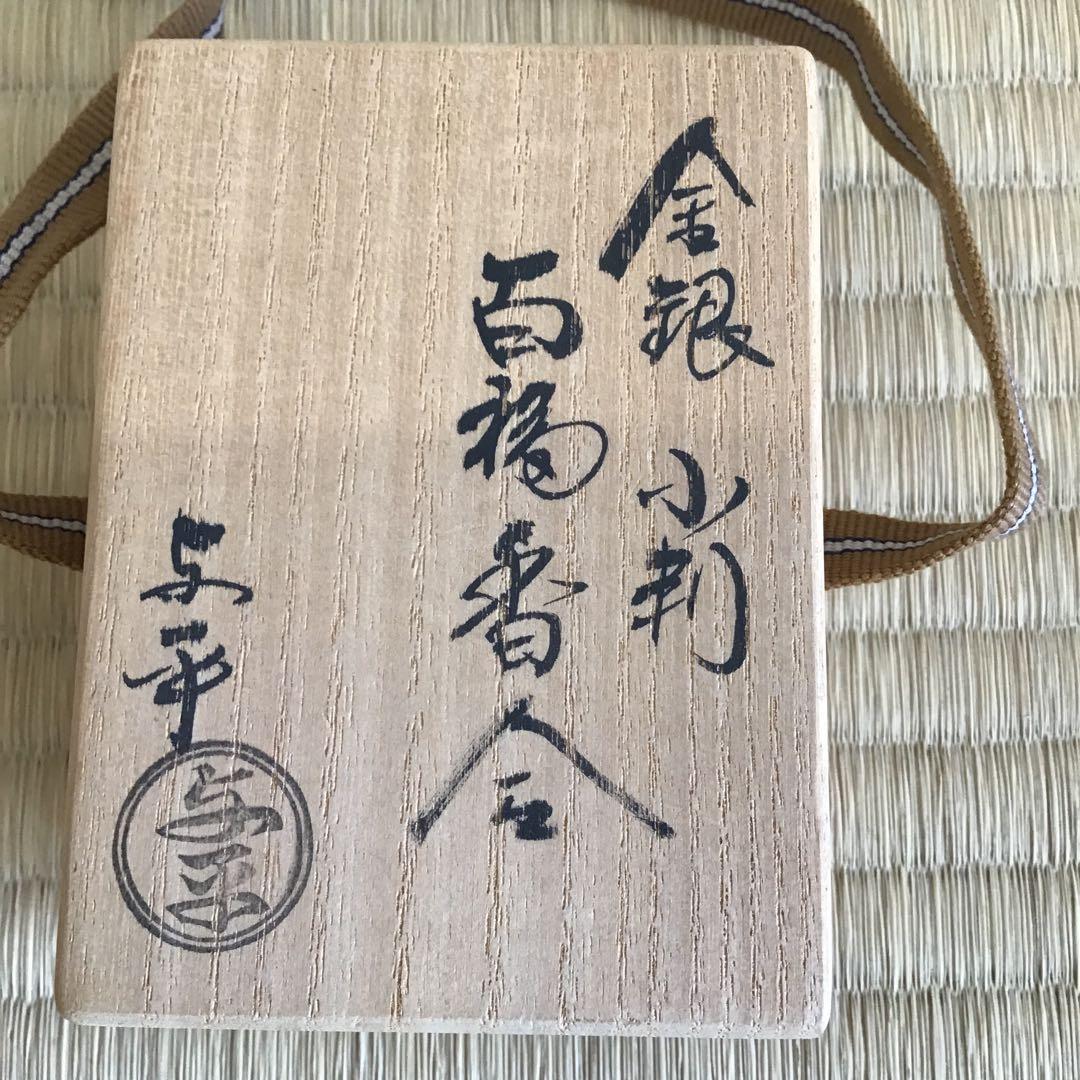 金銀 小判
百福香合
与平
与平